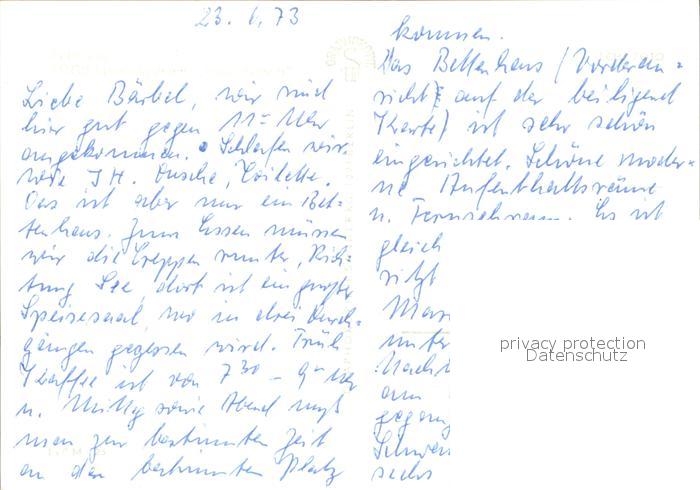 23. 6. 73
Liebe Bärbel, wir sind
hier gut gegen 11 00 Uhr
angekommen. Schlafen wir
Dusche, Toilette.
Das ist aber nur ein Bet-
tenhaus. Zum Essen müssen
wir die Treppen runter, Rich-
tung See, dort ist ein großer
Speisesaal, wo in drei Durch-
gängen gegessen wird. Früh
Kaffee ist von 7 30 - 9 00 Uhr
u. Mittag sowie Abend muß
man zur bestimmten Zeit
an den bestimmten Platz
kommen.
Das Bettenhaus (Vorderan-
sicht auf der beiligend
Karte) ist sehr schön
eingerichtet. Schöne moder-
ne Aufenthaltsräume
u. Fernsehraum. Es ist
gleich
sitzt
unter
am
gegang
sechs
privacy protection
Datenschutz